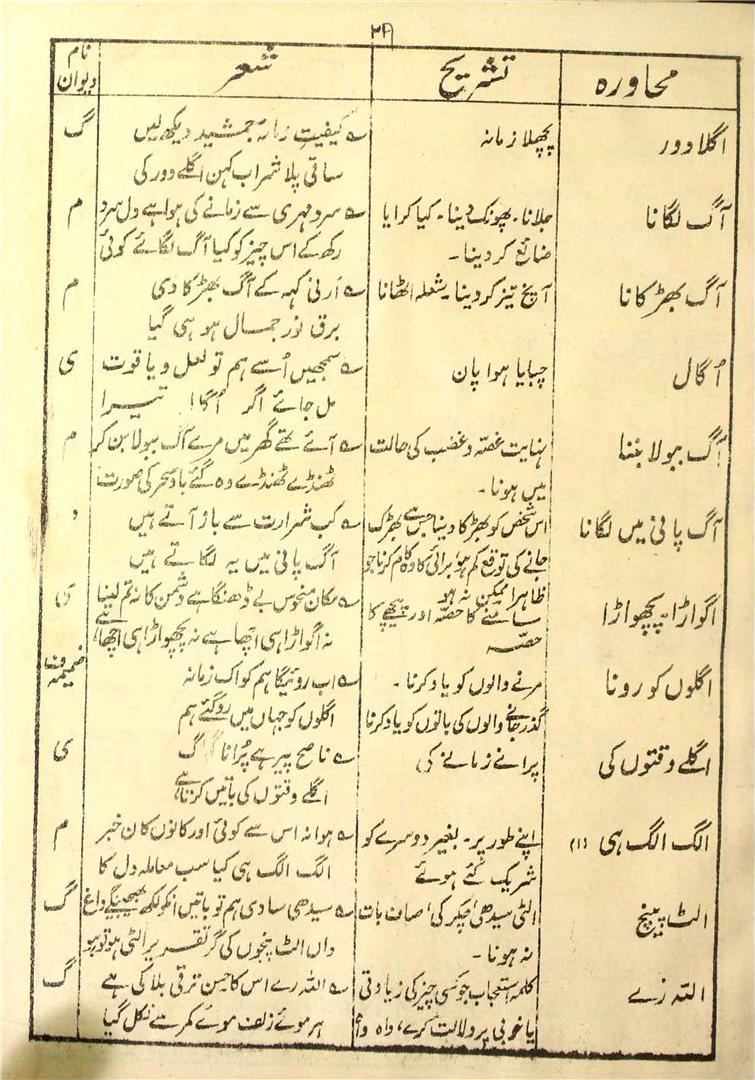 ۳۸
محاورہ تشریح شعر نام دیوان
اگلا دور پچھلا زمانہ ؎ کیفیتِ زمانۂ جمشید دیکھ لیں گ
ساقی پلا شراب کہن اگلے دور کی
آگ لگانا جلانا۔ پھونک دینا۔ کیا کرایا ؎ سرد مہری سے زمانے کی ہوا ہے دل سرد م
ضائع کر دینا۔ رکھ کے اس چیز کو کیا آگ لگائے کوئی
آگ بھڑکانا آنچ تیز کر دینا۔ شعلہ اٹھانا ؎ اَرنی کہہ کے آگ بھڑکا دی م
برق نور جمال ہو ہی گیا
اُگال چبایا ہوا پان ؎ سمجھیں اُسے ہم تو لعل و یاقوت ی
مل جائے اگر اُگال تیرا
آگ ببولا بننا نہایت غصّہ و غضب کی حالت ؎ آئے تھے گھر میں مرے آگ ببولا بن کر م
میں ہونا۔ ٹھنڈے ٹھنڈے وہ گئے بادِ سحر کی صورت
آگ پانی میں لگانا اس شخص کو بھڑکا دینا جس سے بھڑک ؎ کب شرارت سے باز آتے ہیں
جانے کی توقع کم ہو، برائی کا وہ کام کرنا جو آگ پانی میں یہ لگاتے ہیں
ظاہرا ممکن نہ ہو
اگواڑا۔ پچھواڑا سامنے کا حصّہ اور پیچھے کا ؎ مکان منحوس بے ڈھنگا ہے دشمن کا نہ تم لینا ی
حصّہ نہ اگواڑا ہی اچھا ہے نہ پچھواڑا ہی اچھا ہے
اگلوں کو رونا مرنے والوں کو یاد کرنا۔ ؎ اب روئیگا ہم کو اک زمانہ ضمیمہ
گذر جانے والوں کی باتوں کو یاد کرنا اگلوں کو جہاں میں رو گئے ہم
اگلے وقتوں کی پرانے زمانے کی ؎ ناصح پیر ہے پُرانا گرگ ی
اگلے وقتوں کی باتیں کرتا ہے
الگ الگ ہی (۱) اپنے طور پر۔ بغیر دوسرے کو ؎ ہوا نہ اس سے کوئی اور کانوں کان خبر م
شریک کئے ہوئے الگ الگ ہی کیا سب معاملہ دل کا
الٹ پینچ الٹی سیدھی، چکر کی، صاف بات ؎ سیدھی سادی ہم تو باتیں انکو لکھ بھیجینگے داغ گ
نہ ہونا۔ واں الٹ پنچوں کی گر تقریر الٹی ہو تو ہو
اللہ رے کلمہ استعجاب جو کسی چیز کی زیادتی ؎ اللہ رے اس کا حسن ترقی بلا کی ہے گ
یا خوبی پر دلالت کرے، واہ وا ہر موئے زلف موئے کمر سے نکل گیا